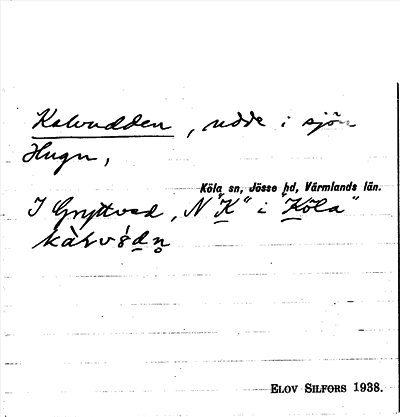 Kalvudden, udde i sjön
Hugn,
Köla sn, Jösse hd, Värmlands län.
I Gryttved, N "K" i "Köla"
ELOV SILFORS 1938.